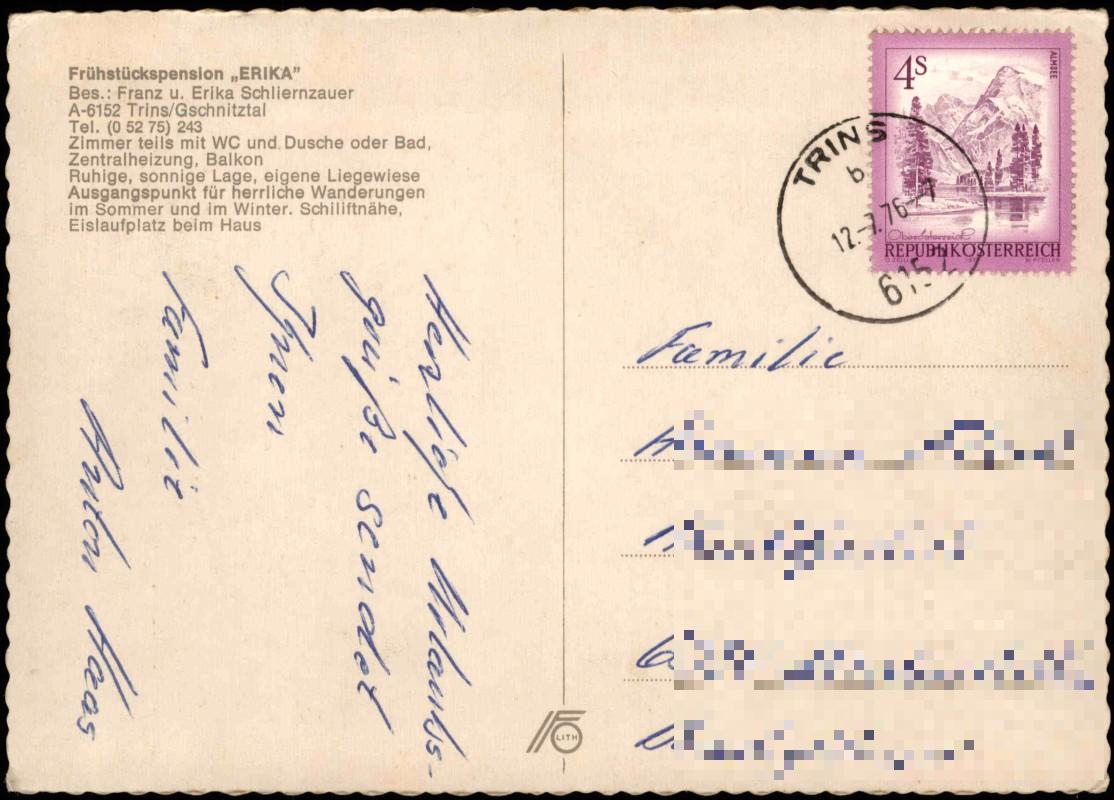 Frühstückspension „ERIKA”
Bes.: Franz u. Erika Schliernzauer
A-6152 Trins/Gschnitztal
Tel. (0 52 75) 243
Zimmer teils mit WC und Dusche oder Bad,
Zentralheizung, Balkon
Ruhige, sonnige Lage, eigene Liegewiese
Ausgangspunkt für herrliche Wanderungen
im Sommer und im Winter. Schiliftnähe,
Eislaufplatz beim Haus
Herzliche Urlaubs-
grüße sendet
Ihnen
Familie
Anton Haas
LITH
4S
ALMSEE
Oberösterreich
REPUBLIK ÖSTERREICH
TRINS
b
12.-7.76-7
6152
Familie